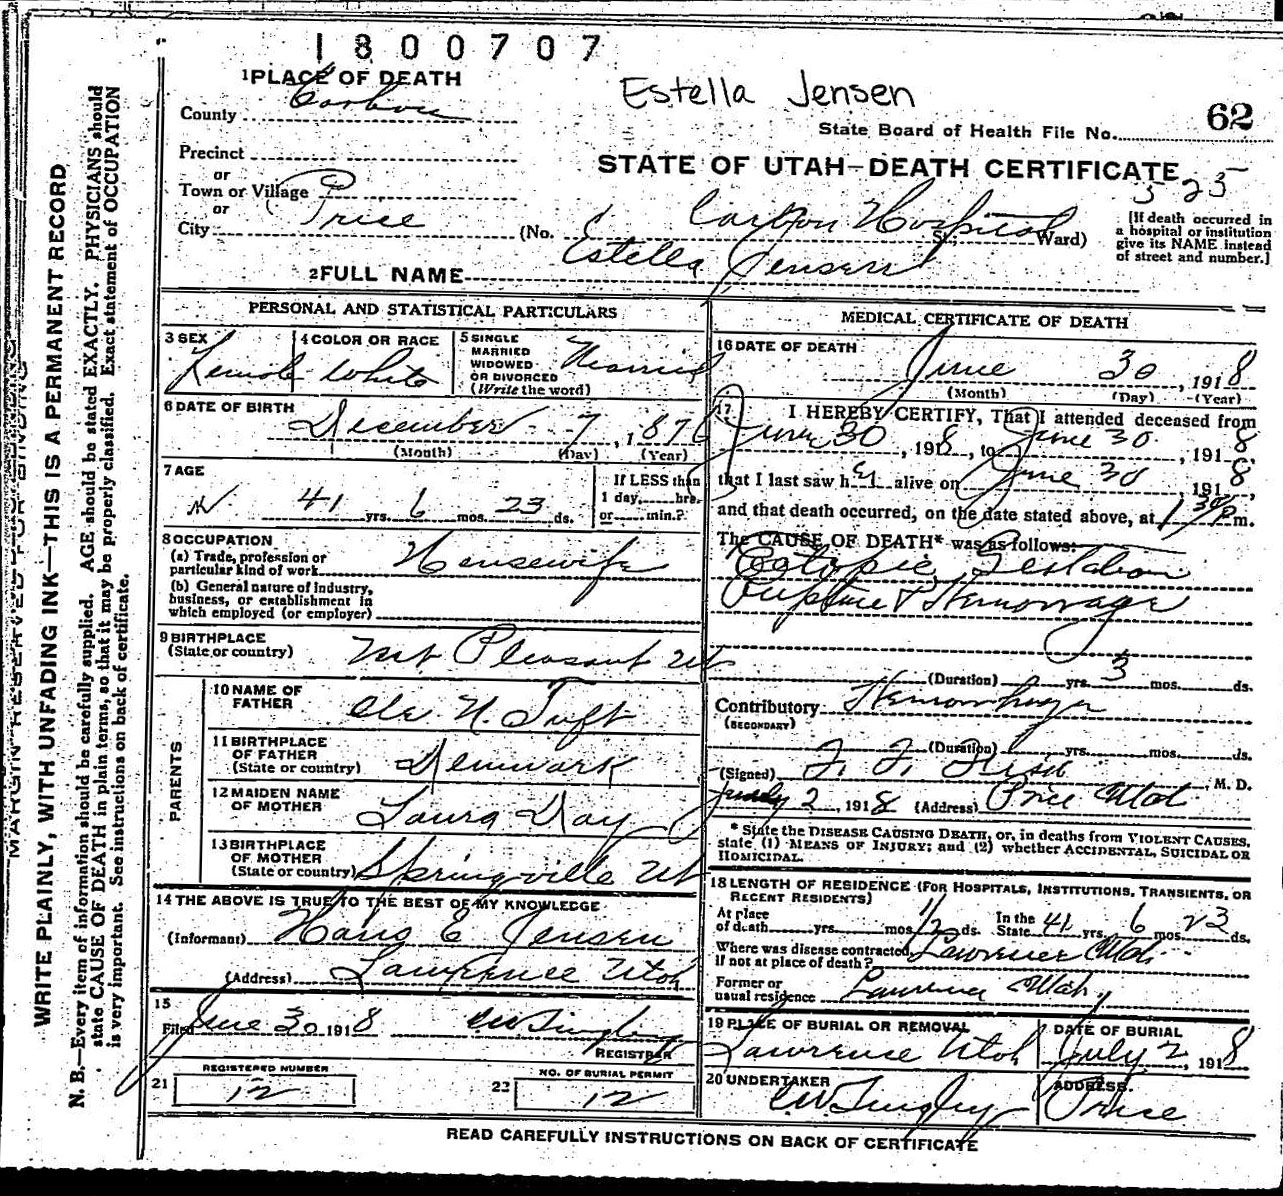 1800707
1 PLACE OF DEATH
Estella Jensen
County Carbon
State Board of Health File No. 62
Precinct
or
STATE OF UTAH—DEATH CERTIFICATE
325
Town or Village
or
City Price (No. Carbon Hospital St.; Ward)
[If death occurred in
a hospital or institution
give its NAME instead
of street and number.]
2 FULL NAME Estella Jensen
PERSONAL AND STATISTICAL PARTICULARS
3 SEX Female
4 COLOR OR RACE White
5 SINGLE
MARRIED
WIDOWED
OR DIVORCED
(Write the word) Married
6 DATE OF BIRTH
December 7, 1876
(Month) (Day) (Year)
7 AGE
41 yrs. 6 mos. 23 ds.
If LESS than
1 day, hrs.
or min.?
8 OCCUPATION
(a) Trade, profession or
particular kind of work Housewife
(b) General nature of industry,
business, or establishment in
which employed (or employer)
9 BIRTHPLACE
(State or country) Mt Pleasant Ut
PARENTS
10 NAME OF
FATHER Ole N. Tuft
11 BIRTHPLACE
OF FATHER
(State or country) Denmark
12 MAIDEN NAME
OF MOTHER Laura Day
13 BIRTHPLACE
OF MOTHER
(State or country) Springville Ut
14 THE ABOVE IS TRUE TO THE BEST OF MY KNOWLEDGE
(Informant) Hans E Jensen
(Address) Lawrence Utah
15
Filed June 30 1918 CW Tingley
REGISTRAR
21 REGISTERED NUMBER
12
22 NO. OF BURIAL PERMIT
12
MEDICAL CERTIFICATE OF DEATH
16 DATE OF DEATH
June 30, 1918
(Month) (Day) (Year)
17 I HEREBY CERTIFY, That I attended deceased from
June 30, 1918, to June 30, 1918,
that I last saw her alive on June 30, 1918,
and that death occurred, on the date stated above, at 1 30 p m.
The CAUSE OF DEATH* was as follows:
Ectopic Gestation
Rupture & Hemorrage
(Duration) yrs. 3 mos. ds.
Contributory Hemorrhage
(SECONDARY)
(Duration) yrs. mos. ds.
(Signed) F. F. Fisk, M. D.
July 2, 1918 (Address) Price Utah
* State the DISEASE CAUSING DEATH, or, in deaths from VIOLENT CAUSES,
state (1) MEANS OF INJURY; and (2) whether ACCIDENTAL, SUICIDAL OR
HOMICIDAL.
18 LENGTH OF RESIDENCE (FOR HOSPITALS, INSTITUTIONS, TRANSIENTS, OR
RECENT RESIDENTS)
At place
of death yrs. mos. 1/2 ds. In the State 41 yrs. 6 mos. 23 ds.
Where was disease contracted,
if not at place of death? Lawrence Utah
Former or
usual residence Lawrence Utah
19 PLACE OF BURIAL OR REMOVAL
Lawrence Utah
DATE OF BURIAL
July 2, 1918
20 UNDERTAKER
CW Tingley
ADDRESS.
Price
READ CAREFULLY INSTRUCTIONS ON BACK OF CERTIFICATE
MARGIN RESERVED FOR BINDING
WRITE PLAINLY, WITH UNFADING INK—THIS IS A PERMANENT RECORD
N. B.—Every item of information should be carefully supplied. AGE should be stated EXACTLY. PHYSICIANS should
state CAUSE OF DEATH in plain terms, so that it may be properly classified. Exact statement of OCCUPATION
is very important. See instructions on back of certificate.